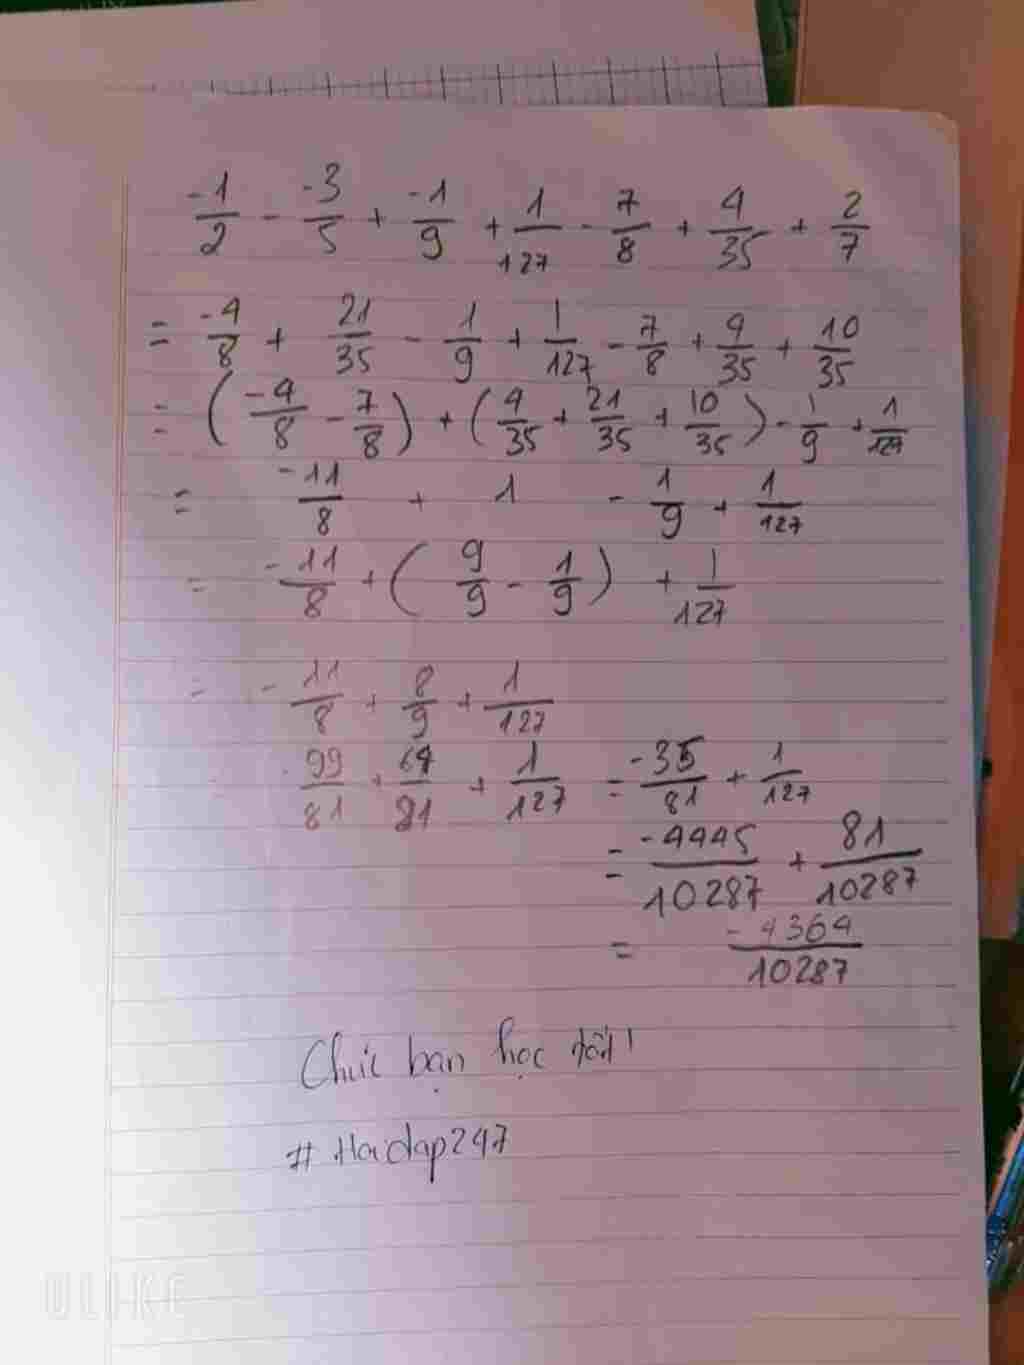 -1/2 - -3/5 + -1/9 + 1/127 - 7/8 + 4/35 + 2/7
= -4/8 + 21/35 - 1/9 + 1/127 - 7/8 + 4/35 + 10/35
= (-4/8 - 7/8) + (4/35 + 21/35 + 10/35) - 1/9 + 1/127
= -11/8 + 1 - 1/9 + 1/127
= -11/8 + (9/9 - 1/9) + 1/127
= -11/8 + 8/9 + 1/127
-99/81 + 64/81 + 1/127 = -35/81 + 1/127
= -4445/10287 + 81/10287
= -4364/10287
Chúc bạn học tốt!
#Hoidap247
ULIKE